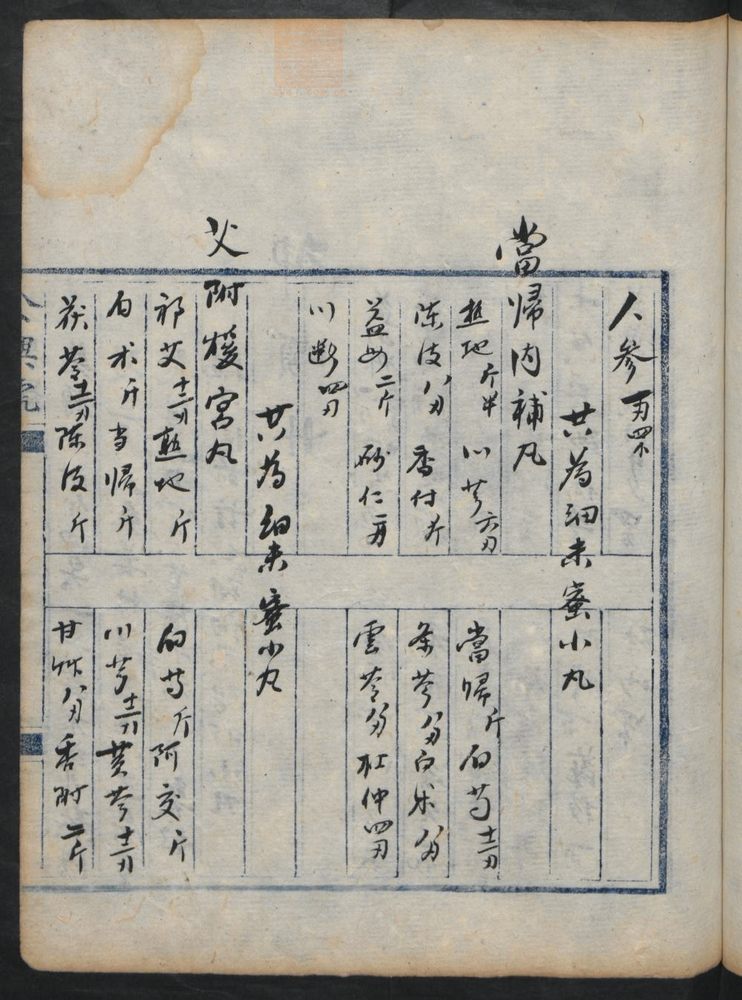 人參一兩四小
共為細末蜜小丸
當歸内補丸
熟地斤半 川芎六刃 當歸斤 白芍十二刃
陳皮八刃 香付斤 条芩八刃 白朮八刃
益母二斤 砂仁一刃 雲苓八刃 杜仲四刃
川斷四刃
共為細末蜜小丸
艾附煖宮丸
祁艾十二刃 熟地斤 白芍斤 阿交斤
白朮斤 当歸斤 川芎十二刃 黄芩十二刃
茯苓十二刃 陳皮斤 甘草八刃 香附二斤